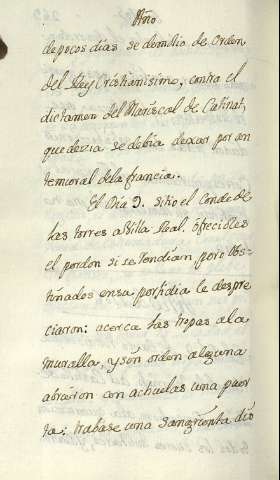 Año
de pocos dias se demolio de Orden
del Rey Cristianisimo, contra el
dictamen del Mariscal de Catinat,
que dezia se debia dexar por an
temural dela francia.
El Dia 9. sitio el Conde de
las torres a Villa Real. Ofrecioles
el perdon si se rendian pero Obs-
tinados en su porfidia le despre
ciaron: acerca las tropas a la
muralla, y sin orden alguna
abrieron con achuelas una puer
ta: trabase una sangrienta dis